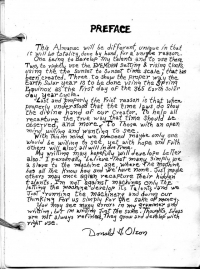 PREFACE
This Almanac will be different, unique in that
it will be totally done by hand, for a unique reason.
One being to develop my talents and to use them.
Two, to signify use the EPHEMRAM Setting & ruler chart
using the the sunset to sunset time scale, that has
been created. Three, to show the proper way the
Earth Solar year is to be done using the Spring
Equinox as the first day of the 365 Earth Solar
day year cycle.
Last and properly the first reason is that when
properly understood that the time laws do show
the divine hand of our Creator. To help all
recording the true way that time should be
observed, and more. To those with an open
mind willing and wanting to see.
With those mind we pressed maybe only one
would be willing to see, yet with hope and faith
others will, also all will in due time.
My writing may hopefully will develope better
also. I personally believe that many simply we
a slave to the machine age, where the machine
has all the know how and we have none. Just maybe
others may once again recapture their hidden
talents. I'm not against machines, only the
letting the machine develope its talents and we
just running the machinery and doing our
thinking for us simply for the sake of money.
You may see many errors in my grammar and
writing, but in writing just the same, thoughts & ideas
are not always refined, they grow and develop with
right use.
Donald H Olson